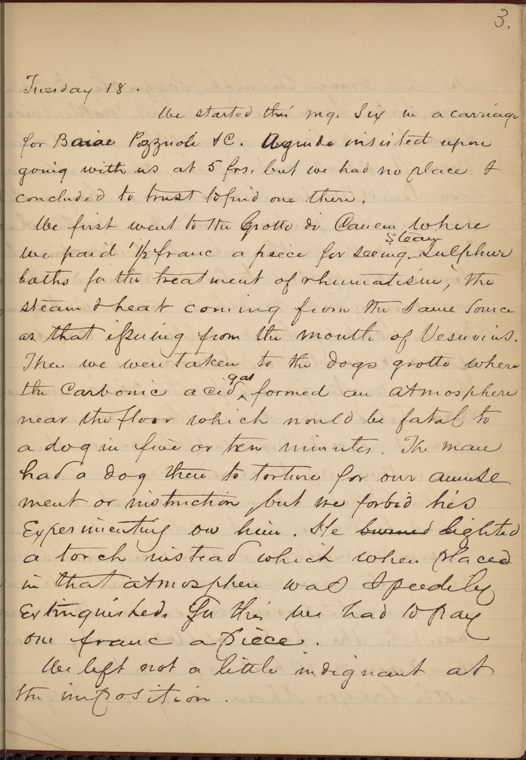 3.
Tuesday 18.
We started this mg. Six in a carriage
for Baiae Pozzuoli &C. A guide insisted upon
going with us at 5 frs. but we had no place &
concluded to trust to find one there.
We first went to the Grotto di Canem, where
steam
we paid 1/2 franc a peece for seeing sulphur
baths for the treatment of rheumatism, the
steam & heat coming from the same source
as that issuing from the mouth of Vesuvius.
Then we were taken to the dogs grotto where
gas
the Carbonic acid ^ formed an atmosphere
near the floor which would be fatal to
a dog in five or ten minutes. The man
had a dog there to torture for our amuse
ment or instruction, but we forbid his
Experimenting on him. He burned lighted
a torch instead which when placed
in that atmosphere was speedily
Extinguished. For this we had to pay
one franc a piece.
We left not a little indignant at
the imposition.